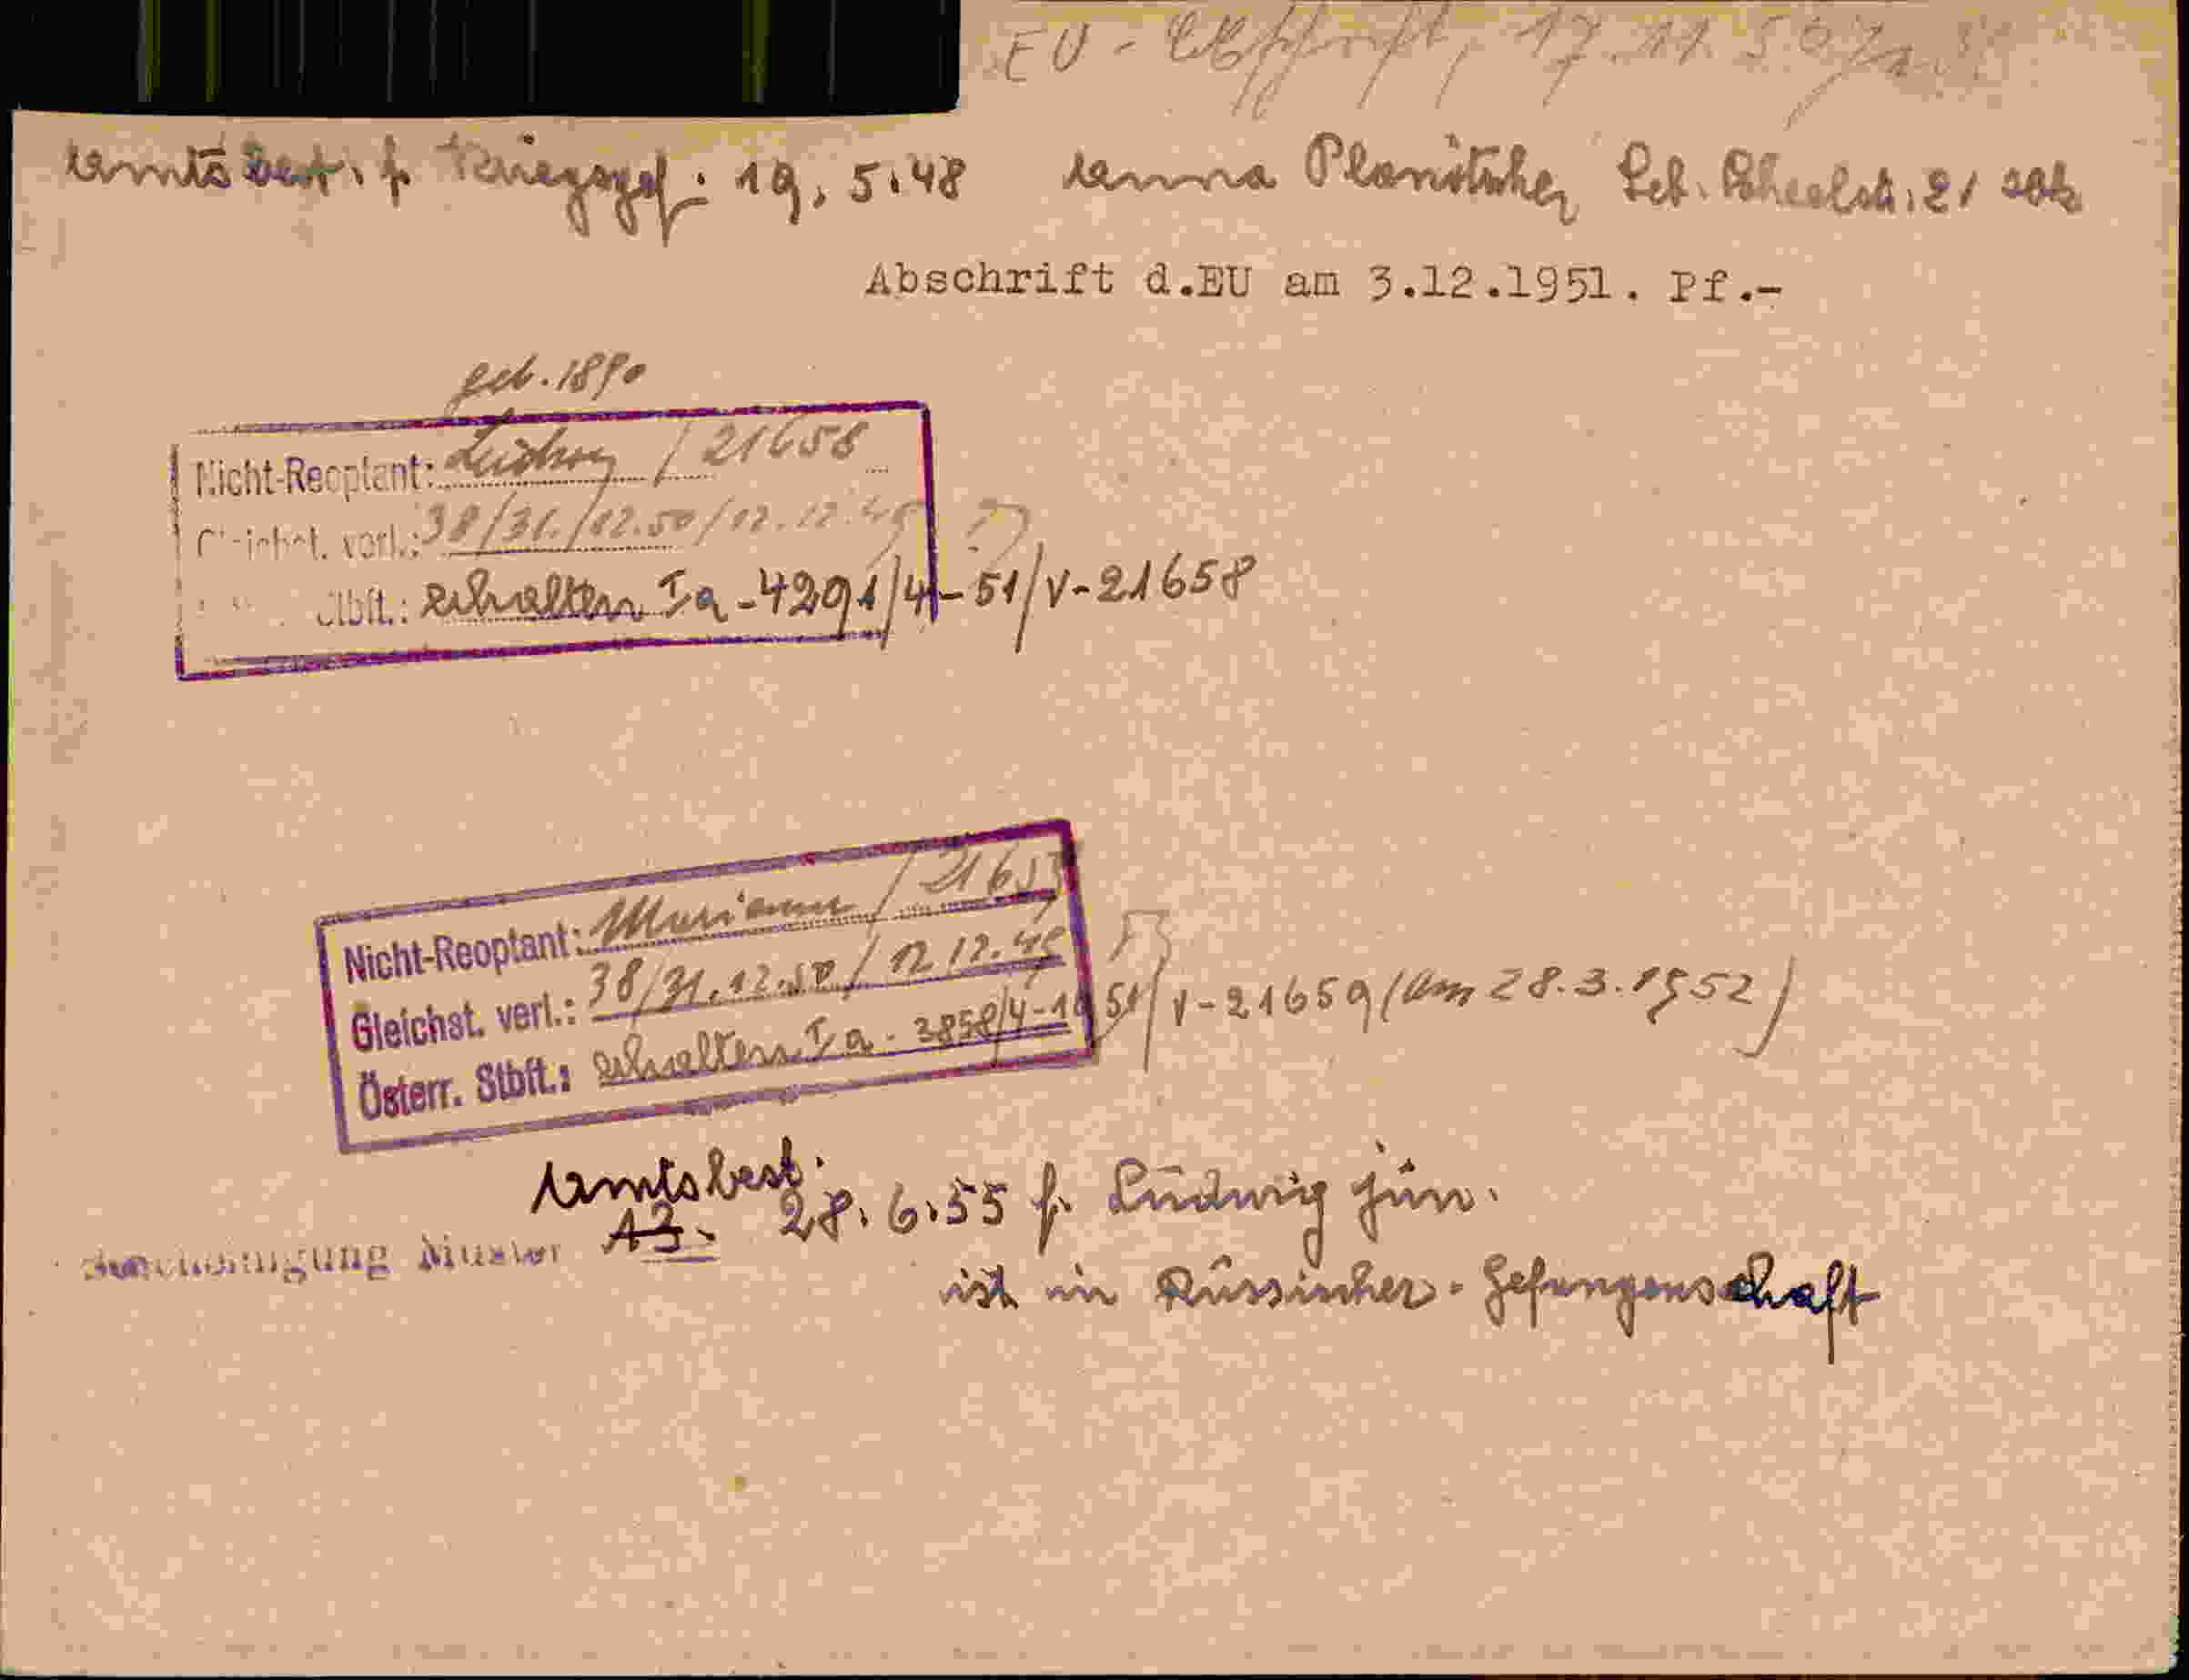 EU - Abschrift, 17.11.50
Amtsbest. f. Kriegsgef. 19.5.48 Anna Planötscher Geb. 21
Abschrift d.EU am 3.12.1951. Pf.-
geb. 1890
Nicht-Reoptant: Ludwig / 21658
Gleichst. verl.: 38/31./12.50/12.12.49
Stbft.: erhalten Ia-4291/4-51/V-21658
Nicht-Reoptant: Mariann / 21659
Gleichst. verl.: 38/31.12.50/12.12.49
Österr. Stbft.: erhalten Ia-3858/4-1951/V-21659 (am 28.3.1952)
Amtsbest.
A3. 28.6.55 f. Ludwig jun.
ist in Russischer-Gefangenschaft